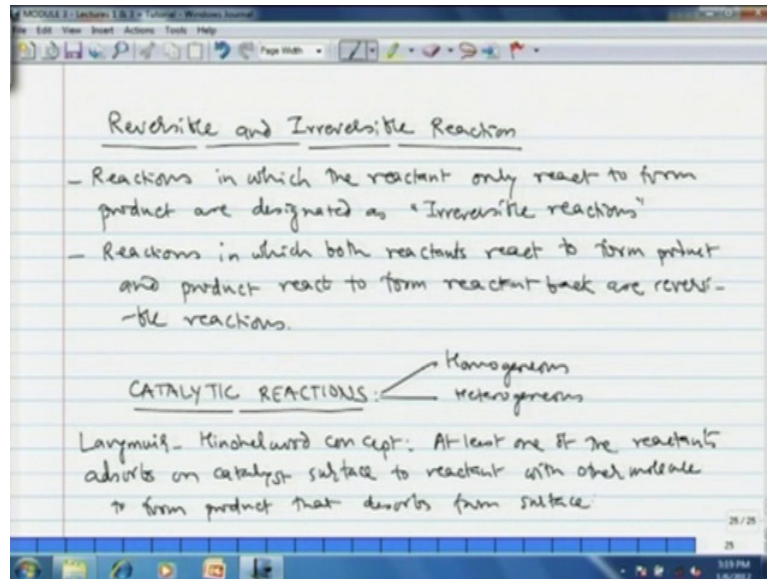 MODULE 3 - Lectures 1 & 3 + Tutorial - Windows Journal
File Edit View Insert Actions Tools Help
Page Width
Reversible and Irreversible Reaction
- Reactions in which the reactant only react to form
product are designated as "Irreversible reactions"
- Reactions in which both reactants react to form product
and product react to form reactant back are reversi-
-ble reactions.
Homogeneous
CATALYTIC REACTIONS:
Heterogeneous
Langmuir-Hinshelwood concept: At least one of the reactants
adsorbs on catalyst surface to reactant with other molecule
to form product that desorbs from surface.
25 / 25
25
3:19 PM
1/6/2012